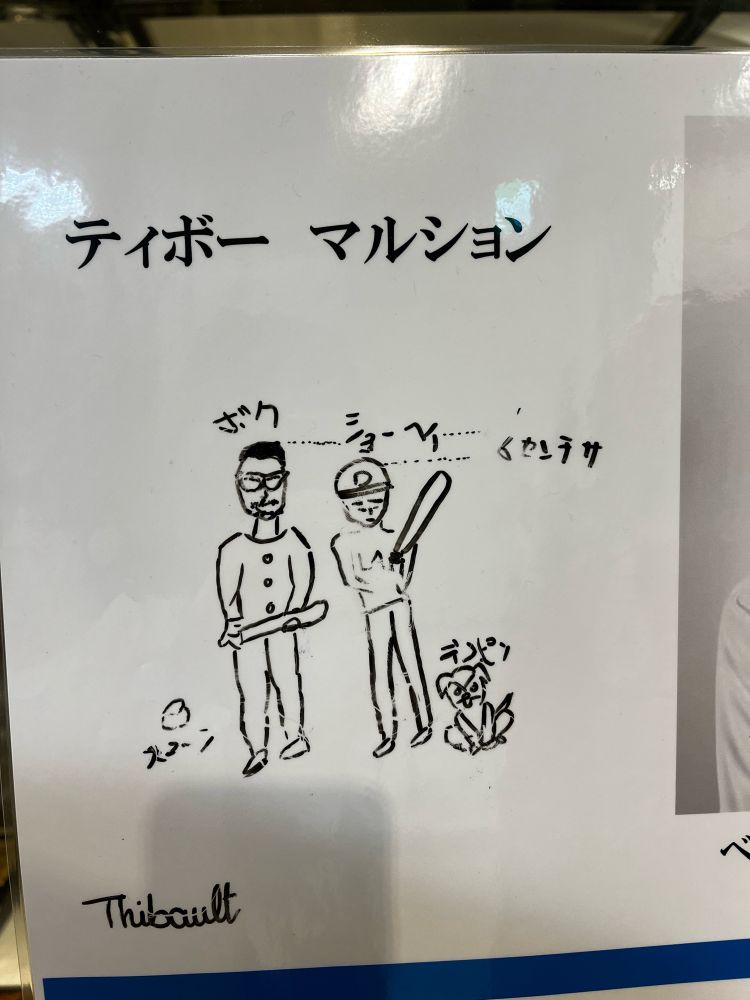 ティボー マルション
ボク
ショーヘイ
センチ サ
D
LA
デコピン
スコーン
Thibault